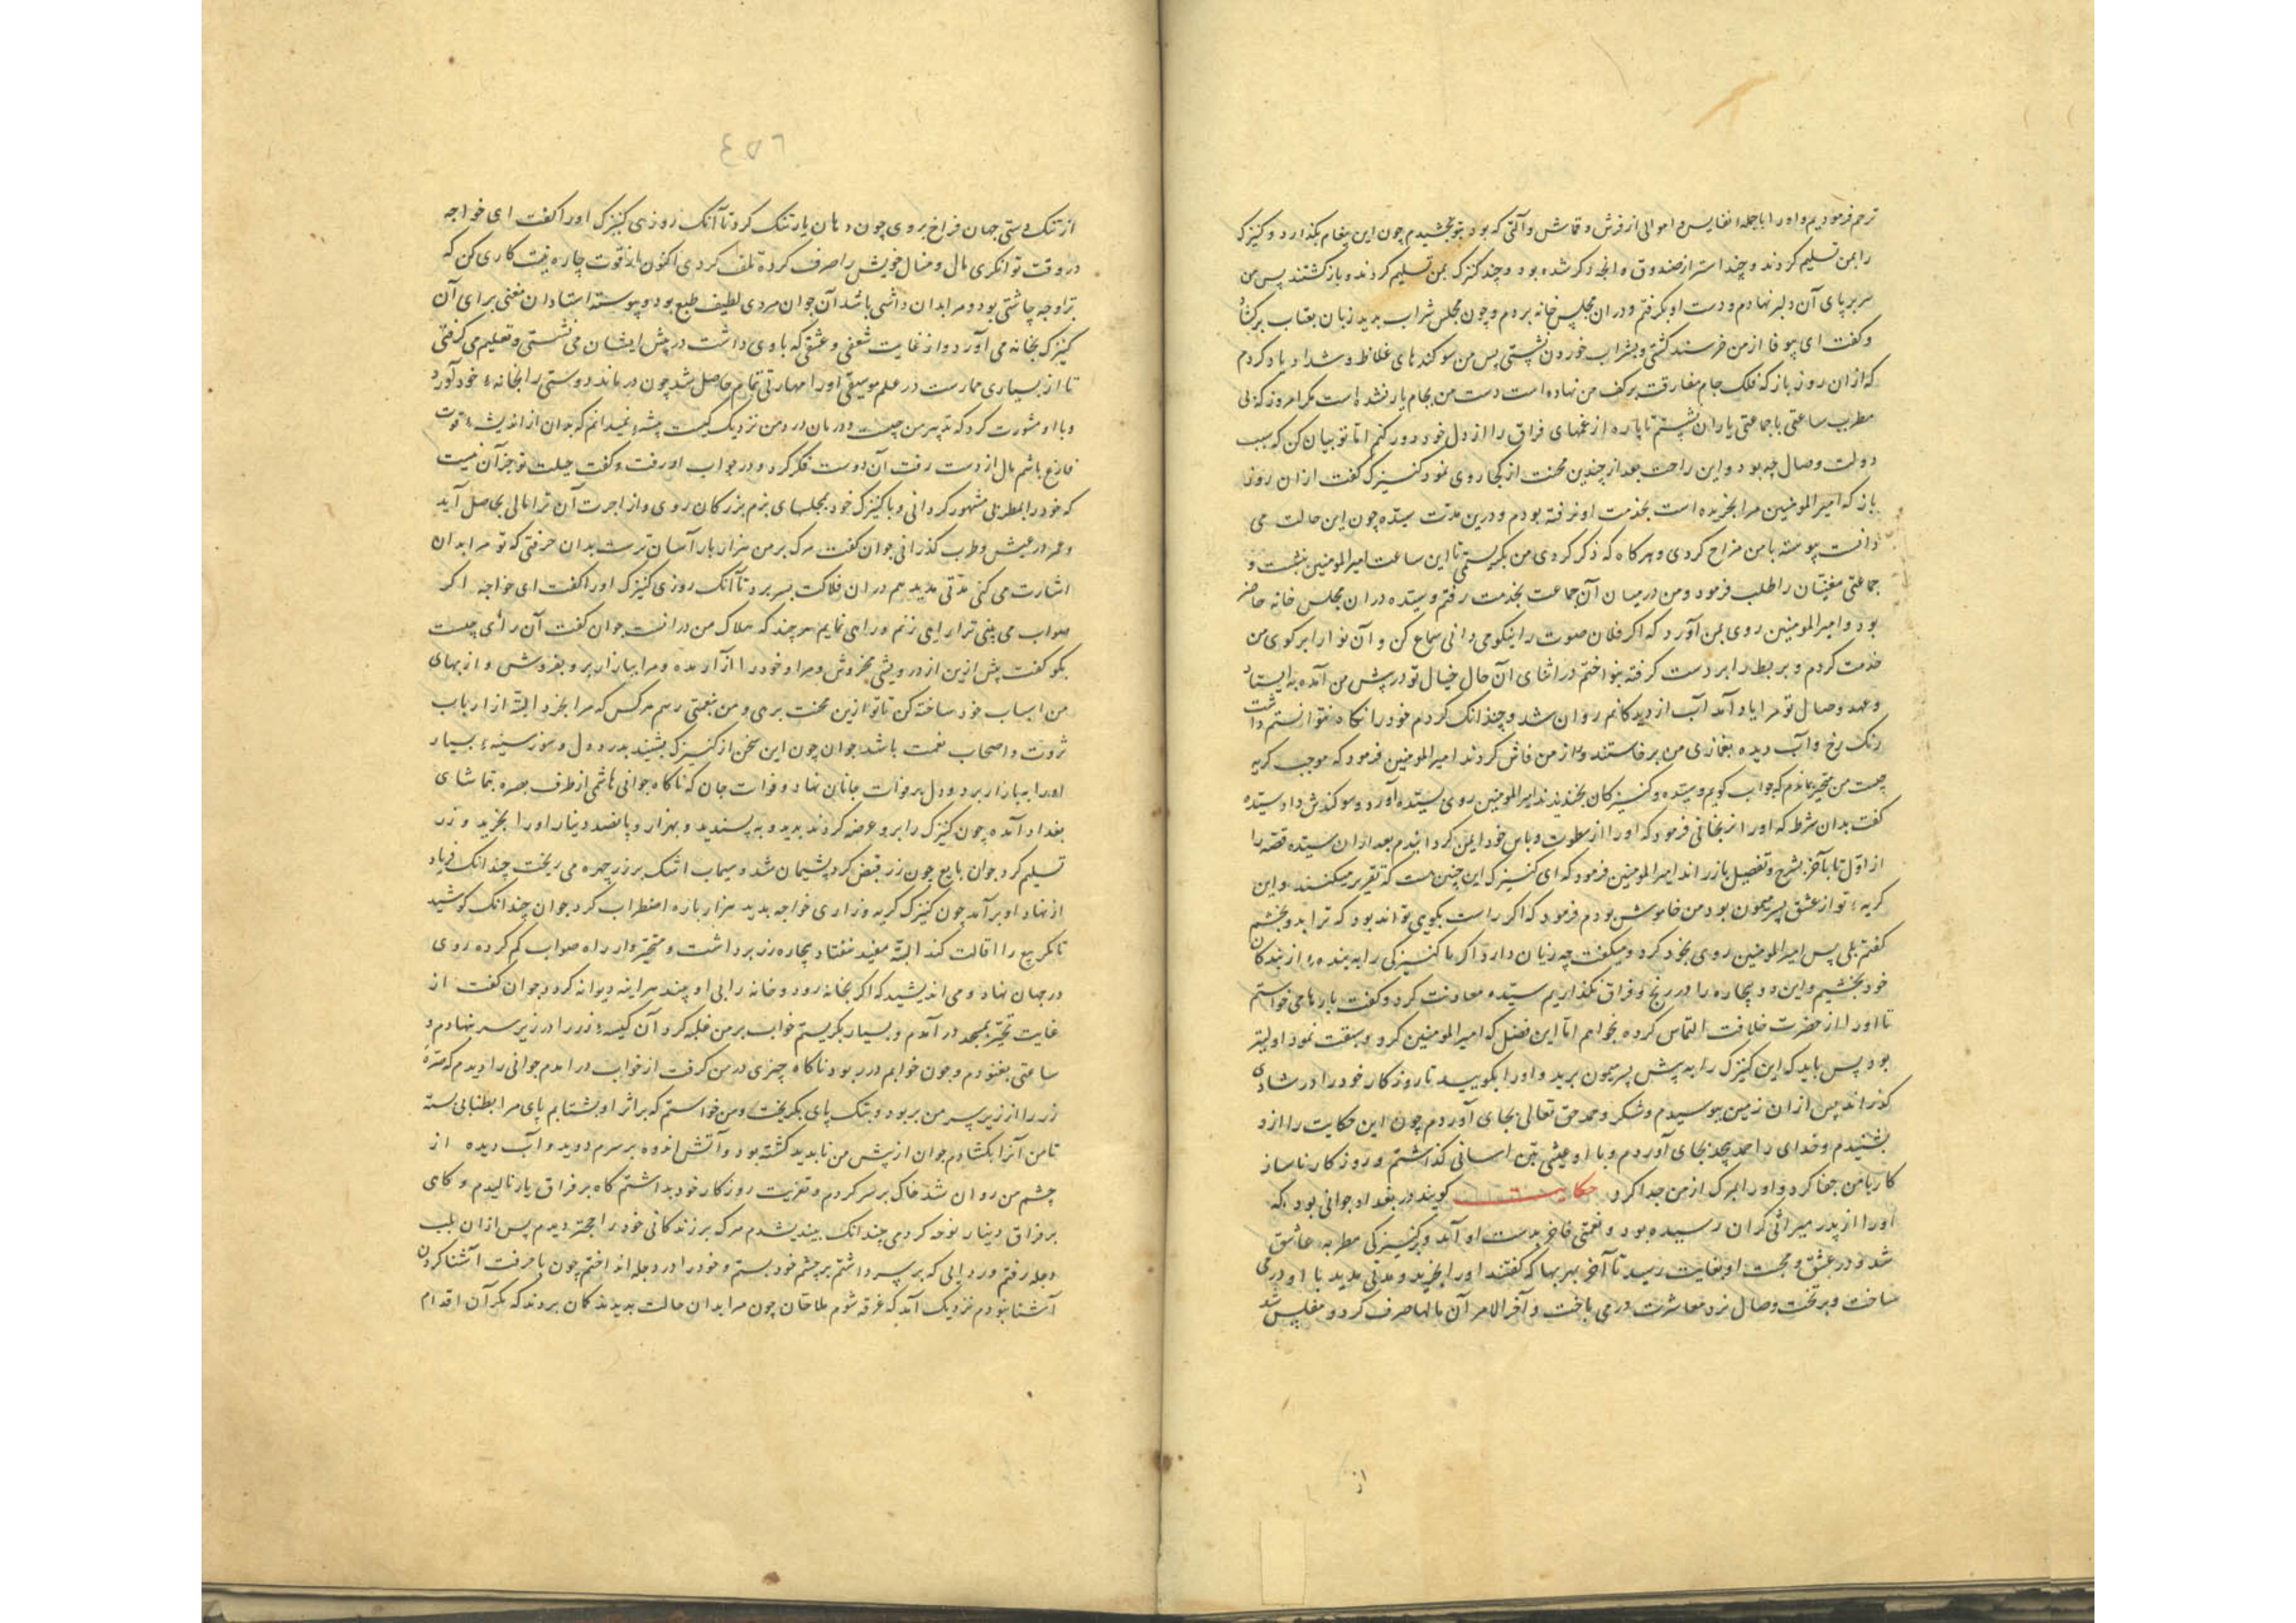 ترحم فرمودیم و او را با جمله نفایس و اموالی از فرش و قماش و آلتی که بود بتو بخشیدم چون این پیغام بگذارد و کنیزک
را بمن تسلیم کردند و چند استر از صندوق و انچه ذکر شده بود و چند کنیزک بمن تسلیم کردند و بازگشتند پس من
سر بر پای آن دلبر نهادم و دست او بگرفتم و دران مجلس خانه بردم و چون مجلس شراب بدید زبان بعتاب برکشاد
و گفت ای بیوفا از من خرسند گشتی و بشراب خوردن نشستی پس من سوکندهای غلاظ و شداد یاد کردم
که ازان روز باز که فلک جام مفارقت بر کف من نهاده است دست من بجام یار نشده است مگر امروز که بی
مطرب ساعتی با جماعتی یاران نشستم تا پاره از غمهای فراق را از دل خود دور کنم اما تو بیان کن که سبب
دولت وصال چه بود و این راحت بعد از چندین محنت از کجا روی نمود کنیزک گفت ازان روز
باز که امیرالمومنین مرا بخریده است بخدمت او نرفته بودم و درین مدت سیده چون این حالت می
دانست پیوسته با من مزاح کردی و هر کاه که ذکر کردی من بگریستمی تا این ساعت امیرالمومنین بنشست و
جماعتی مغنیان را طلب فرمود و من درمیان آن جماعت بخدمت رفتم و سیده دران مجلس خانه حاضر
بود و امیرالمومنین روی بمن آورد که اگر فلان صوت را نیکو می دانی سماع کن و آن نوا را برکوی من
خدمت کردم و بربط را بر دست گرفته بنواختم در اثنای آن حال خیال تو در پیش من آمده به ایستاد
و عهد وصال تو مرا یاد آمد آب از دیدکانم روان شد و چندانک کردم خود را نکاه نتوانستم داشت
رنک رخ و آب دیده بغمازی من برخاستند و راز من فاش کردند امیرالمومنین فرمود که موجب گریه
چیست من متحیر بماندم که جواب گویم و سیده و کنیزکان بخندیدند امیرالمومنین روی بسیده آورد و سوکندش داد سیده
گفت بدان شرط که او را نرنجانی فرمود که او را از سطوت و باس خود ایمن گردانیدم بعد ازان سیده قصه را
از اول تا بآخر بشرح و تفصیل باز راند امیرالمومنین فرمود که ای کنیزک این چنین هست که تقریر میکنند و این
گریه تو از عشق پسر میمون بود من خاموش بودم فرمود که اگر راست بگوی تواند بود که ترا بدو بخشم
گفتم بلی پس امیرالمومنین روی بخود کرد و میگفت چه زیان دارد اگر ما کنیزکی را به بنده از بندکان
خود بخشیم و این دو بیچاره را در رنج و فراق نگذاریم سیده معاونت کرد و گفت بارها می خواستم
تا او را از حضرت خلافت التماس کرده بخواهم اما این فضل که امیرالمومنین کرد و سبقت نمود اولیتر
بود پس باید که این کنیزک را به پیش پسر میمون برید و او را بگویید تا روزکار خود را در شادی
گذراند پس ازان زمین ببوسیدم و شکر و حمد حق تعالی بجای آوردم چون این حکایت را ازو
بشنیدم و خدای را حمد بیحد بجای آوردم و با او عیشی بتن اسانی گذاشتم و روزکار ناساز
کار با من جفا کرد و او را بمرک از من جدا کرد حکایت گویند در بغداد جوانی بود که
او را از پدر میراثی گران رسیده بود و نعمتی فاخر بدست او آمد و بر کنیزکی مطربه عاشق
شد و در عشق و محبت او بغایت رسید تا آخر بهر بها که گفتند او را بخرید و مدتی مدید با او در می
ساخت و بر تخت وصال نرد معاشرت در می باخت و آخر الامر آن مالها صرف کرد و مفلس شد
از
٤٥٦
از تنک دستی جهان فراخ بروی چون دهان یار تنک کرد تا آنک روزی کنیزک او را گفت ای خواجه
در وقت توانکری مال و منال خویش را صرف کرده تلف کردی اکنون باز قوت چاره نیست کاری کن که
ترا وجه چاشتی بود و مرا بدان داشی باشد آن جوان مردی لطیف طبع بود و پیوسته استادان مغنی برای آن
کنیزک بخانه می آورد و از غایت شعفی و عشقی که با وی داشت در پیش ایشان می نشستی و تعلیم می گرفتی
تا از بسیاری ممارست در علم موسیقی او را مهارتی تمام حاصل شد چون درماند دوستی را بخانه خود آورد
و با او مشورت کرد که تدبیر من چیست و درمان درد من نزدیک کیست پیشه نمیدانم که بدان از اندیشه قوت
فارغ باشم مال از دست رفت آن دوست فکر کرد و در جواب او رفت و گفت حیلت تو جز آن نیست
که خود را بمطربی مشهور گردانی و با کنیزک خود بمجلسهای بزم بزرکان روی و از اجرت آن ترا مالی بحاصل آید
و عمر در عیش و طرب گذرانی جوان گفت مرک بر من هزار بار آسان ترست بدان حرفتی که تو مرا بدان
اشارت می کنی مدتی مدید هم دران فلاکت بسر برد تا آنک روزی کنیزک او را گفت ای خواجه اگر
صواب می بینی ترا رایی زنم و راهی نمایم هر چند که هلاک من درانست جوان گفت آن رای چیست
بگو گفت پیش ازین از درویشی مخروش و مرا و خود را از آن ده و مرا ببازار بر و بفروش و از بهای
من اسباب خود ساخته کن تا تو ازین محنت برهی و من بنعمتی رسم هر کس که مرا بخرد البته از ارباب
ثروت و اصحاب نعمت باشد جوان چون این سخن از کنیزک بشنید بدرد دل و سوز سینه بسیار
او را ببازار برد و دل بر وفات جانان نهاد و فوات جان که ناکاه جوانی هاشمی از طرف بصره بتماشای
بغداد آمده چون کنیزک را برو عرضه کردند بدید و به پسندید و بهزار و پانصد دینار او را بخرید و زر
تسلیم کرد جوان بایع چون زر قبض کرد پشیمان شد و سیماب اشک بر زر چهره می ریخت چندانک فریاد
از نهاد او برآمد چون کنیزک گریه و زاری خواجه بدید هزار باره اضطراب کرد جوان چندانک کوشید
تا مگر بیع را اقالت کند البته مفید نیفتاد بیچاره زر برداشت و متحیروار راه صواب گم کرده روی
در جهان نهاد و می اندیشید که اگر بخانه رود و خانه را بی او بیند هراینه دیوانه گردد جوان گفت از
غایت تحیر بمسجد درآمدم و بسیار بگریستم خواب بر من غلبه کرد آن کیسه زر را در زیر سر نهادم و
ساعتی بغنودم و چون خوابم در ربود ناکاه چیزی در من گرفت از خواب درآمدم جوانی را دیدم که صره
زر را از زیر سر من بربود و بتک پای بگریخت و من خواستم که بر اثر او بشتابم پای مرا بطنابی بسته
تا من آنرا بکشادم جوان از پیش من ناپدید گشته بود و آتش اندوه بر سرم دوید و آب دیده از
چشم من روان شد خاک بر سر کردم و تعزیت روزکار خود بداشتم کاه بر فراق یار نالیدم و کاهی
بر فراق دینار نوحه کردمی چندانک بیندیشیدم مرک بر زندکانی خود راجحتر دیدم پس ازان بلب
دجله رفتم و ردایی که بر سر داشتم بر چشم خود بستم و خود را در دجله انداختم چون با حرفت آشنا کردن
آشنا نبودم نزدیک آمد که غرقه شوم ملاحان چون مرا بدان حالت بدیدند کمان بردند که مگر آن اقدام